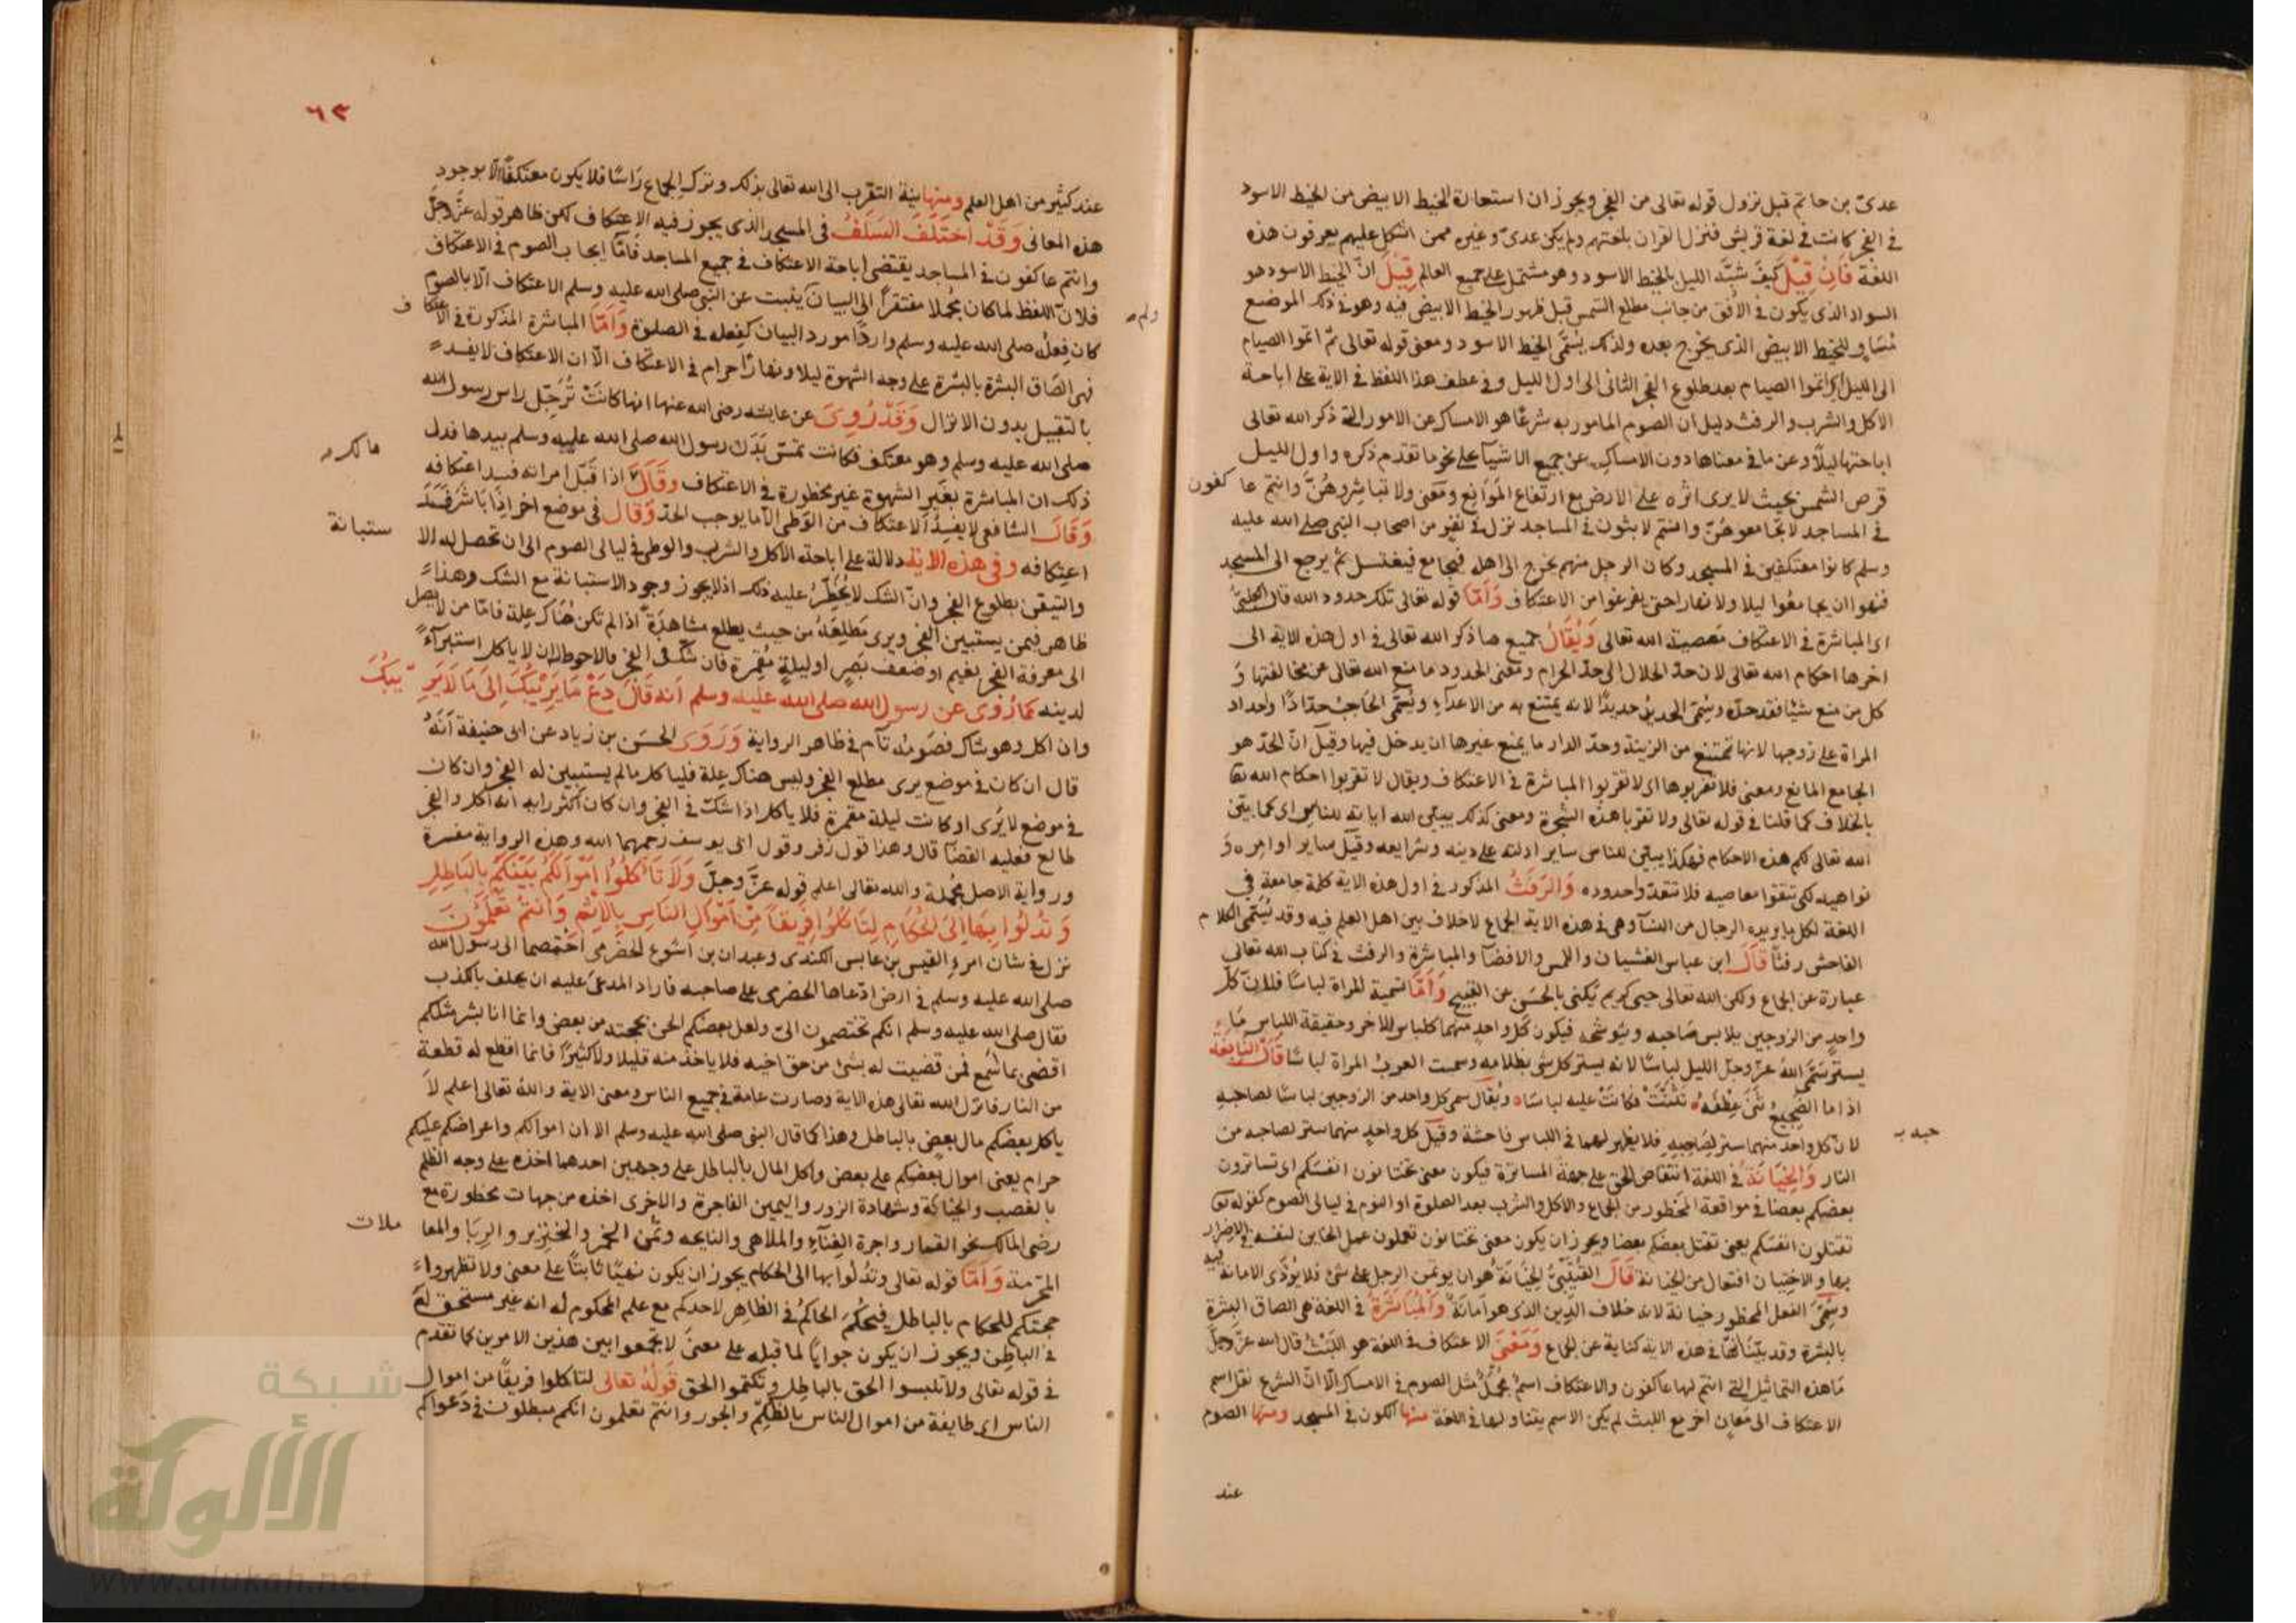 عدىّ بن حاتم قبل نزول قوله تعالى من الفجر ويجوز ان استعارة الخيط الابيض من الخيط الاسود
فى الفجر كانت فى لغة قريش فنزل القران بلغتهم ولم يكن عدىّ وغيره ممن اشكل عليهم يعرفون هذه
اللغة فَاِنْ قِيْلَ كيفَ شبّه الليل بالخيط الاسود وهو مشتمل على جميع العالم قِيْلَ انّ الخيط الاسود هو
السواد الذى يكون فى الافق من جانب مطلع الشمس قبل ظهور الخيط الابيض فيه وهو فى ذلك الموضع
مُسَاوٍ للخيط الابيض الذى يخرج بعده ولذلك يُسَمَّى الخيط الاسود ومعنى قوله تعالى ثمّ اتموا الصيام
الى الليل اى اتموا الصيام بعد طلوع الفجر الثانى الى اول الليل وفى عطف هذا اللفظ فى الاية على اباحة
الاكل والشرب والرفث دليل ان الصوم المامور به شرعًا هو الامساك عن الامور التى ذكر الله تعالى
اباحتها ليلًا وعن ما فى معناها دون الامساك عن جميع الاشيآ على نحو ما تقدم ذكره واول الليل
قرص الشمس بحيث لا يرى اثره على الارض مع ارتفاع المَوَانِع ومعَنى ولا تباشِروهُنَّ وانتم عاكفون
فى المساجد لا تجامعوهُنّ وانتم لابثون فى المساجد نزل فى نفرٍ من اصحاب النبى صلى الله عليه
وسلم كانوا معتكفين فى المسجد وكان الرجل منهم يخرج الى اهله فيجامع فيغتسل ثم يرجع الى المسجد
فنهوا ان يجامعُوا ليلا ولا نهارا حتى يفرغوا من الاعتكاف وَاَمَّا قوله تعالى تلك حدود الله قال الكلبىُّ
اى المباشرة فى الاعتكاف مَعصية الله تعالى وَيُقَالُ جميع ما ذكر الله تعالى فى اول هذه الاية الى
اخرها احكام الله تعالى لان حدّ الحلال الى حدّ الحرام ومعنى الحدود ما منع الله تعالى عن مخالفتها وَ
كل من منع شيئا فقد حدّه وسُمّىَ الحديدُ حديدًا لانه يمتنع به من الاعدآءِ ويُسَمَّى الحَاجبُ حدّادًا واحداد
المراة على زوجها لانها تمتنع من الزينة وحدّ الدار ما يمنع غيرها ان يدخل فيها وقيل انّ الحدّ هو
الجامع المانع ومعنى فلا تقربوها اى لا تقربوا المباشرة فى الاعتكاف ويقال لا تقربوا احكام الله تعا
بالخلاف كما قلنا فى قوله تعالى ولا تقربا هذه الشجرة ومعنى كذلك يبيّن الله اياته للناس اى كما بيّن
الله تعالى لكم هذه الاحكام فهكذا يبيّن للناس ساير ادلته على دينه وشرايعه وقيل ساير اوامره وَ
نواهيه لكى تتقوا معاصيه فلا تتعدّوا حدوده وَالرَّفَثُ المذكور فى اول هذه الاية كلمة جامعة فى
اللغة لكل ما يريده الرجال من النسآ وهى فى هذه الاية الجماع لا خلاف بين اهل العلم فيه وقد يُسَمَّى الكلام
الفاحش رفثًا قَالَ ابن عباس الغشيان واللمس والافضآ والمباشرة والرفث فى كتاب الله تعالى
عبارة عن الجماع ولكن الله تعالى حيى كريم يَكنى بالحسَن عن القبيح وَاَمَّا تسمية المراة لباسًا فلانّ كلّ
واحدٍ من الزوجين يلابس صَاحبه ويتوشحه فيكون كلّ واحدٍ منهما كلباس للاخر وحقيقة اللباس مَا
يستر سَمَّى اللهُ عزّ وجلّ الليل لباسًا لانه يستر كل شئ بظلامه وسمت العربُ المراة لباسًا قَالَ النَّابِغَةُ
اذا ما الضجيعُ ثنَى عِطْفَهُ تثنّتْ فكانَتْ عليه لباسًا ويُقال سمى كل واحد من الزوجين لباسًا لصاحبهِ
لانّ كل واحد منهما ستر لِصَاحِبِهِ فلا يظهر لهما فى اللباس فاحشة وقيل كل واحدٍ منهما ستر لصاحبه من
النار وَالخِيَانَةُ فى اللغة انتقاص الحق على جهة المساترة فيكون معنى تختانون انفسكم اى تساترون
بعضكم بعضا فى مواقعة المَحظور من الجماع والاكل والشرب بعد الصلوة او النوم فى ليالى الصوم كقوله تع
تقتلون انفسَكم يعنى تقتل بعضكم بعضا ويجوز ان يكون معنى تختانون تعملون عمل الخاين لنفسه فى الاضرار
بها والاختِيَان افتعال من الخيانة قَالَ القُتَيْبِىُّ الخِيَانَة هو ان يوتمن الرجل على شئ فلا يُؤدّى الامانة فيه
وسُمِّىَ الفعل المحظور خيانة لانه خلاف الدِين الذى هو امانةٌ وَالْمُبَاشَرَةُ فى اللغة هى الصاق البشرةِ
بالبشرة وقد بيّنا انها فى هذه الاية كناية عن الجماع وَمَعْنَى الاعتكاف فى اللغة هو اللبثُ قال الله عزّ وجلّ
مَا هذه التماثيل التى انتم لها عاكفون والاعتكاف اسمٌ مُجملٌ مثل الصوم فى الامساك الّا انّ الشرع نقل اسم
الاعتكاف الى مَعانٍ اخر مع اللبث لم يكن الاسم يتناولها فى اللغة منها الكون فى المسجد ومنها الصوم
عند
٦٣
عند كثير من اهل العلم ومنها نية التقرب الى الله تعالى بذلك وترك الجماع رَاسًا فلا يكون معتكفًا الّا بوجود
هذه المعانى وَقَدْ اخْتَلَفَ السَّلَفُ فى المسجد الذى يجوز فيه الاعتكاف لكن ظاهر قوله عزّ وجلّ
وانتم عاكفون فى المساجد يقتضى اباحة الاعتكاف فى جميع المساجد فامّا ايجاب الصوم فى الاعتكاف
فلانّ اللفظ لما كان مُجملا مفتقرًا الى البيان يثبت عن النبى صلى الله عليه وسلم الاعتكاف الّا بالصوم
كان فِعلُه صلى الله عليه وسلم واردًا مورد البيان كفِعله فى الصلوة وَاَمَّا المباشرة المذكورة فى الاعتكاف
فهى الصَاق البشرة بالبشرة على وجه الشهوة ليلا ونهارًا حرام فى الاعتكاف الّا ان الاعتكاف لا يفسد
بالتقبيل بدون الانزال وَقَدْ رُوِىَ عن عايشه رضى الله عنها انها كانَتْ تُرَجّل راس رسول الله
صلى الله عليه وسلم وهو معتكف فكانت تمسّ بَدَن رسول الله صلى الله عليه وسلم بيدها فدل
ذلك ان المباشرة بغير الشهوة غير محظورة فى الاعتكاف وقَالَ اذا قبّل امراته فسد اعتكافه
وَقَالَ الشافعى لا يفسِدُ الاعتكاف من الوَطى الّا ما يوجب الحدّ وَقال فى موضع اخر اذا بَاشر فسد
اعتِكافه وفى هذه الاية دلالة على اباحته الاكل والشرب والوطى فى ليالى الصوم الى ان تحصل له الا
ستبانة
والتيقن بطلوع الفجر وانّ الشك لا يُحَظّر عليه ذلك اذ لا يجوز وجود الاستبانة مع الشك وهذا
ظاهر فيمن يستبين الفجر ويرى مَطلِعَهُ من حيث يطلع مشاهَدَةً اذا لم تكن هُنَاك عِلة فامّا من لا يصل
الى معرفة الفجر لغيم او ضعف بَصَرٍ او ليلةٍ مُقمرة فان شكّ فى الفجر فالاحوط له ان لا ياكل استبرآءً
لدينه كمَا رُوِىَ عن رسول الله صلى الله عليه وسلم انه قَالَ دَعْ مَا يَرِيْبُكَ اِلىَ مَا لَا يَرِيبُكَ
وان اكل وهو شاك فصَومُه تآم فى ظاهر الرواية وَرَوَى الحسَن بن زياد عن ابى حنيفة اَنّهُ
قال ان كان فى موضع يرى مطلع الفجر وليس هناك عِلة فلياكل ما لم يستبين له الفجر وان كان
فى موضع لا يَرى او كانت ليلة مقمرة فلا ياكل اذا شكّ فى الفجر وان كان اكثر رايه انه اكل والفجر
طالع فعليه القضآ قال وهذا قول زفر وقول ابى يوسف رحمهما الله وهذه الرواية مفسرة
ورواية الاصل مُجملة والله تعالى اعلم قوله عزّ وجلّ وَلَا تَاكُلُوا اَمْوَالَكُمْ بَيْنَكُمْ بِالبَاطِلِ
وَتُدْلُوا بِهَا اِلىَ الْحُكَّامِ لِتَاكُلُوا فَرِيقًا مِنْ اَمْوَالِ النَاسِ بِالْاِثْمِ وَانْتُمْ تَعْلَمُونَ
نزل فى شان امرءِ القيس بن عابس الكندى وعبدان بن اشوع الحضرمى اختصما الى رسول الله
صلى الله عليه وسلم فى ارض ادّعاها الحضرمى على صاحبه فاراد المدعى عليه ان يحلف بالكذب
فقال صلى الله عليه وسلم انكم تختصمون الىّ ولعل بعضكم الحن بحجته من بعض وانما انا بشر مثلكم
اقضى بما اسمع فمن قضيت له بشئ من حق اخيه فلا ياخذ منه قليلا ولا كثيرًا فانما اقطع له قطعة
من النار فانزل الله تعالى هذه الاية وصارت عامة فى جميع الناس ومعنى الاية والله تعالى اعلم لا
ياكل بعضكم مال بعضٍ بالباطل وهذا كما قال النبى صلى الله عليه وسلم الا ان اموالكم واعراضكم عليكم
حرام يعنى اموال بعضكم على بعض واكل المال بالباطل على وجهين احدهما اخذه على وجه الظلم
بالغصب والخيانة وشهادة الزور واليمين الفاجرة والاخرى اخذه من جهات محظورة مع
رضى المالك نحو القمار واجرة الغِنآءِ والملاهى والنايحه وثمن الخمر والخنزير والرِبَا والمعا
ملات
المحرّمة وَاَمَّا قوله تعالى وتدْلوا بها الى الحكام يجوز ان يكون نهيًا ثابتًا على معنى ولا تظهروا
حجتكم للحكام بالباطل فيحْكُمَ الحاكمُ فى الظاهر لاحدكم مع علم المحكوم له انه غير مستحق لهُ
فى الباطن ويجوز ان يكون جوابًا لما قبله على معنى لا تجمعوا بين هذين الامرين كما تقدم
فى قوله تعالى ولا تلبسوا الحق بالباطل وتكتموا الحق قَولُهُ تعالى لتاكلوا فريقًا من اموال
الناس اى طايفة من اموال الناس بالظلمِ والجور وانتم تعلمون انكم مبطلون فى دَعواكم
شبكة
الألوكة
www.alukah.net